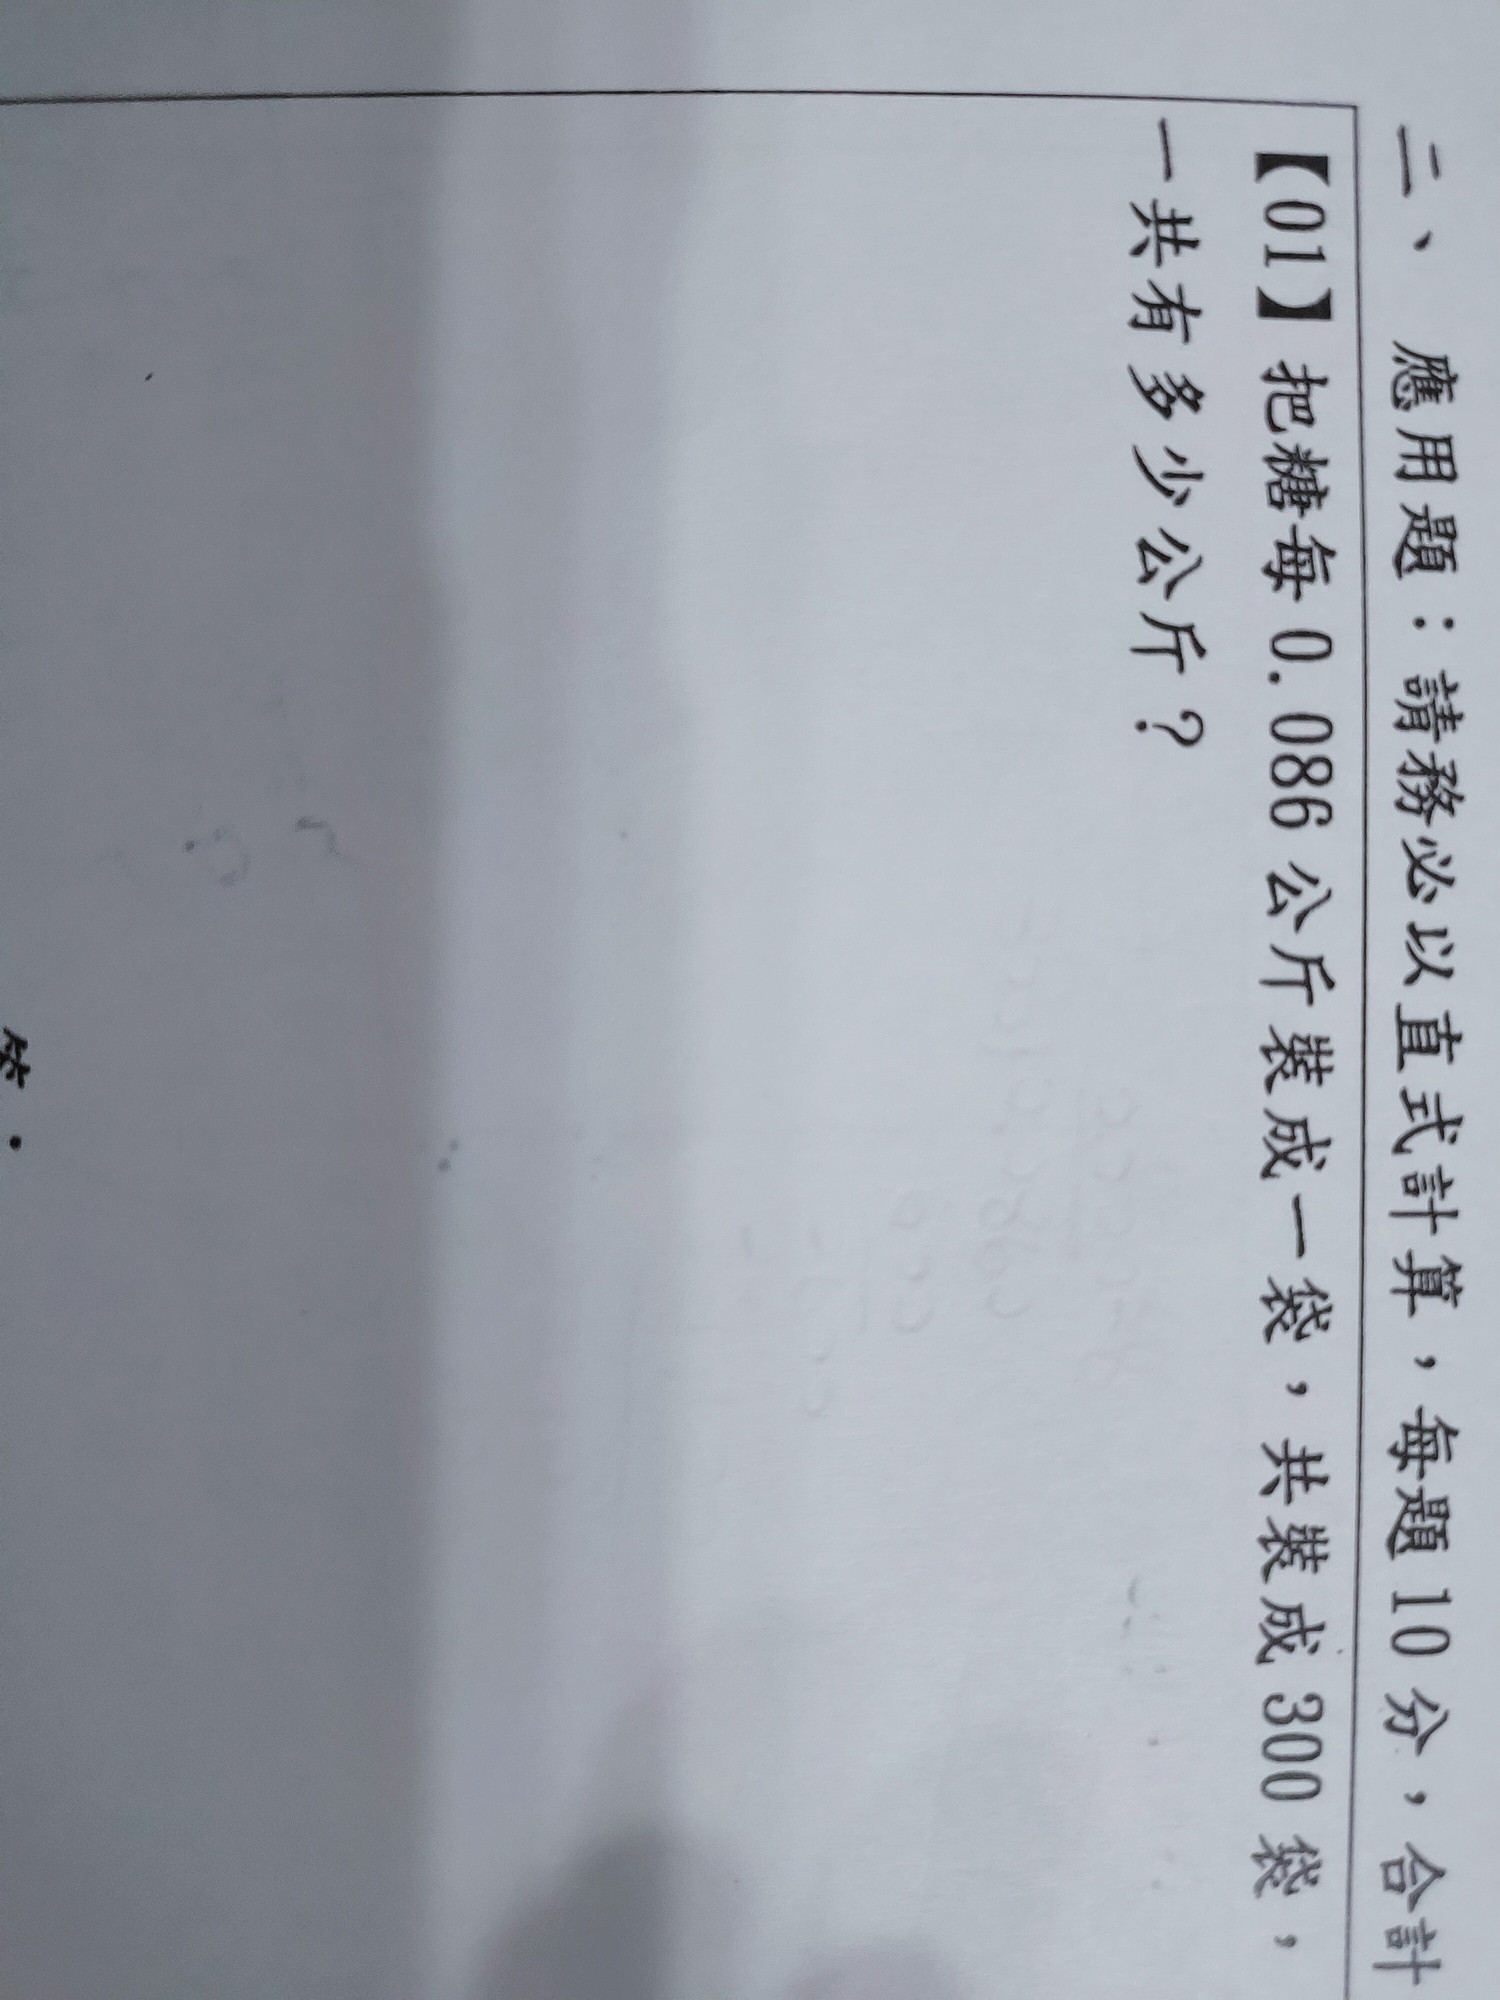 二、 應用題：請務必以直式計算，每題10分，合計
【01】把糖每0.086公斤裝成一袋，共裝成300袋，
一共有多少公斤？
答：